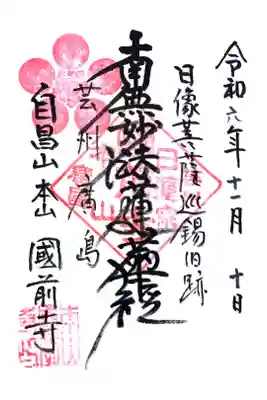 令和六年十一月十日
日像菩薩巡錫旧跡
南無妙法蓮華経
芸州廣島
自昌山本山 國前寺